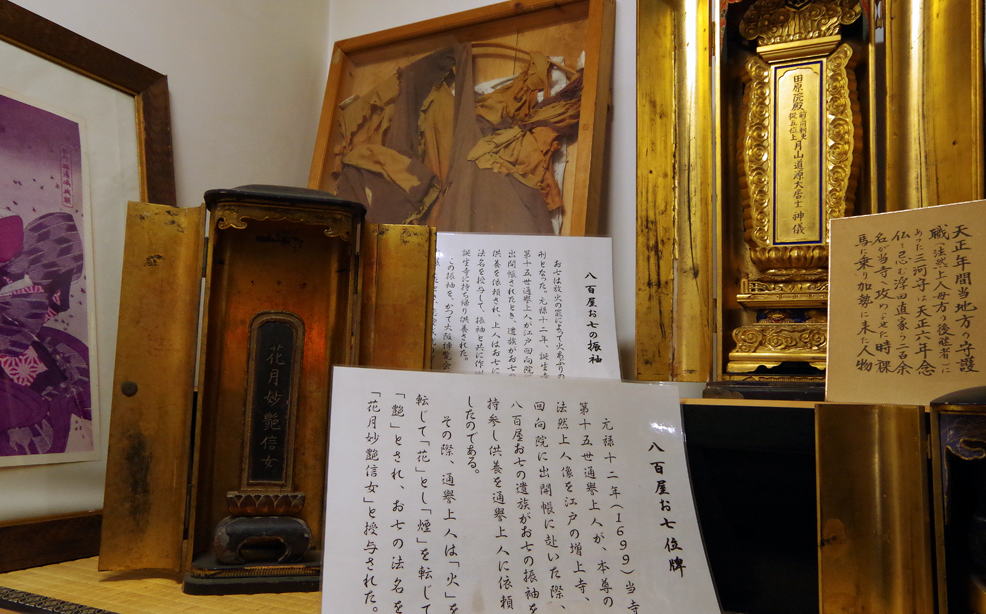 八百屋お七位牌
元禄十二年(1699)当寺
第十五世通譽上人が、本尊の
法然上人像を江戸の増上寺、
回向院に出開帳に赴いた際、
八百屋お七の遺族がお七の振袖を
持参し供養を通譽上人に依頼
したのである。
その際、通譽上人は「火」を
転じて「花」とし「煙」を転じて
「艶」とされ、お七の法名を
「花月妙艶信女」と授与された。
八百屋お七の振袖
お七は放火の罪によって火あぶりの
刑となった。元禄十二年、誕生寺
第十五世通譽上人が江戸回向院
出開帳されたとき、遺族がお
供養を依頼され、上人はお七に
法名を授与して、振袖と共に
誕生寺に持ち帰り供養された。
この振袖を、かつて大阪博覧会
花月妙艶信女
田原院殿前三河刺史従五位上月山道源大居士神儀
天正年間当地方の守護
職(法然上人母方の後継者)に
あった三河守は天正六年念
仏を忌む浮田直家の一百余
名が当寺を攻めよせた時裸
馬に乗り加勢に来た人物